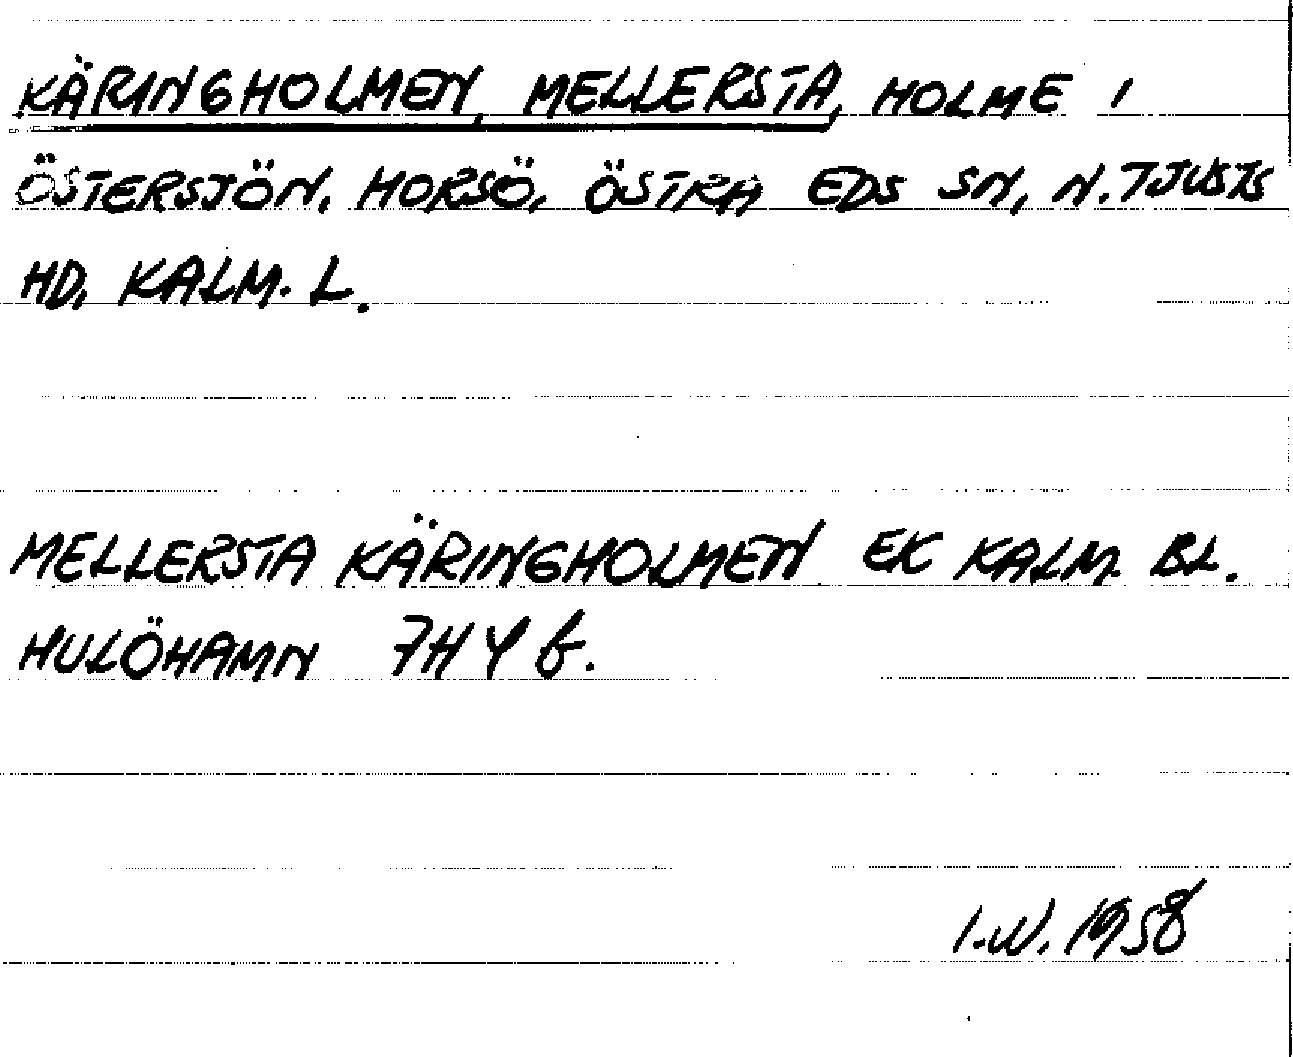 KÄRINGHOLMEN, MELLERSTA, HOLME I
ÖSTERSJÖN, HORSÖ, ÖSTRA EDS SN, N. TJUSTS
HD, KALM. L.
MELLERSTA KÄRINGHOLMEN EK KALM. BL.
HULÖHAMN 7H 4 f.
I.W. 1958